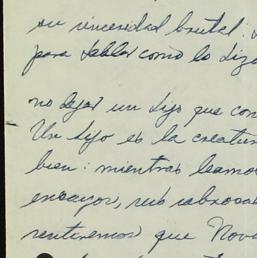 su sinceridad brutal:
para hablar como lo hizo
no dejar un hijo que con
Un hijo es la creatur
bien: mientras leamos
ensayos, sus sabrosa
sentiremos que Nov